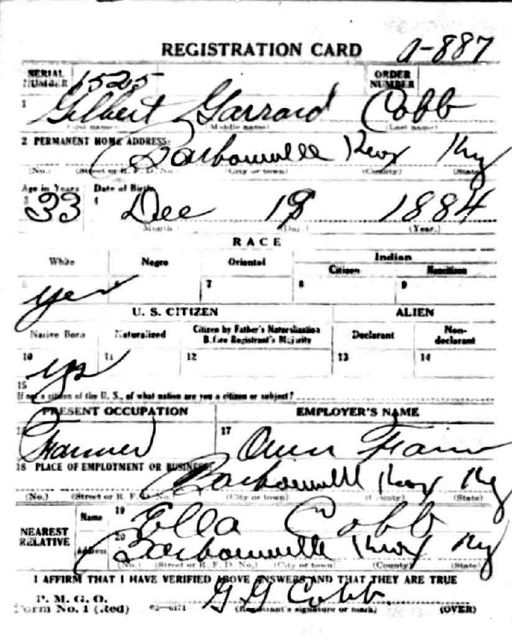 REGISTRATION CARD A-887
SERIAL NUMBER 1525 ORDER NUMBER
1 Gilbert Garrard Cobb
(First name) (Middle name) (Last name)
2 PERMANENT HOME ADDRESS:
Barbourville Knox Ky
(No.) (Street or R. F. D. No.) (City or town) (County) (State)
Age in Years Date of Birth
3 33 4 Dec 18 1884
(Month) (Day) (Year)
RACE
White Negro Oriental Indian
Citizen Noncitizen
yes 7 8 9
U. S. CITIZEN ALIEN
Native Born Naturalized Citizen by Father's Naturalization Before Registrant's Majority Declarant Non-declarant
10 yes 11 12 13 14
15
If not a citizen of the U. S., of what nation are you a citizen or subject?
PRESENT OCCUPATION EMPLOYER'S NAME
16 Farmer 17 Own Farm
18 PLACE OF EMPLOYMENT OR BUSINESS:
Barbourville Knox Ky
(No.) (Street or R. F. D. No.) (City or town) (County) (State)
NEAREST RELATIVE
Name 19 Ella Cobb
Address 20 Barbourville Knox Ky
(No.) (Street or R. F. D. No.) (City or town) (County) (State)
I AFFIRM THAT I HAVE VERIFIED ABOVE ANSWERS AND THAT THEY ARE TRUE
P. M. G. O.
Form No. 1 (Red) G G Cobb
(Registrant's signature or mark) (OVER)